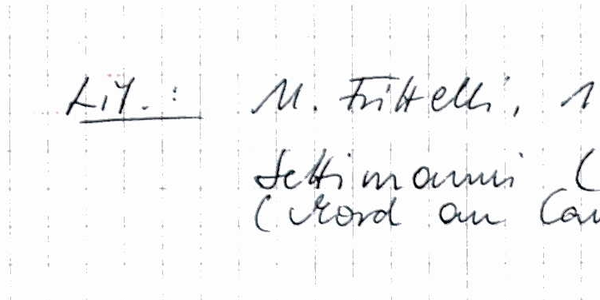 Lit.: M. Frittelli, 1
Settimanni (
(Mord an Can